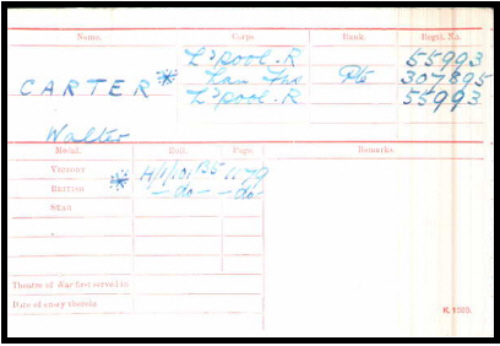 Name. Corps. Rank. Regtl. No.
L'pool. R 55993
CARTER * Lan Fus Pte 307895
L'pool. R 55993
Walter
Medal. Roll. Page. Remarks.
VICTORY H/1/101 B5 1179
BRITISH * —do— —do—
STAR
Theatre of War first served in
Date of entry therein
K. 1380.